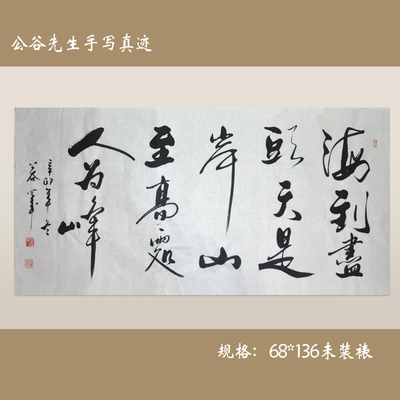 公谷先生手写真迹
海到盡
頭天是
岸山
至高處
人为峰
辛卯年冬
规格：68*136未装裱